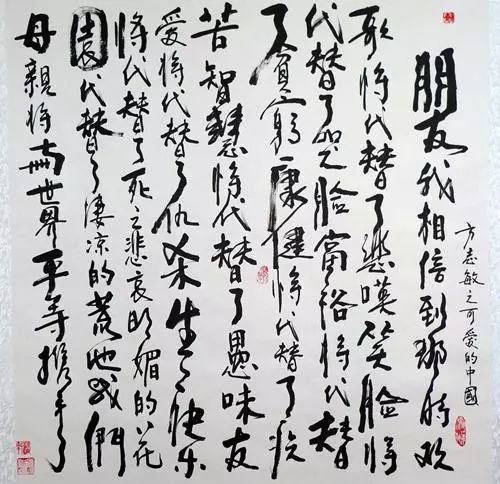 方志敏之可爱的中國
朋友我相信到那时欢
歌将代替了悲嘆笑脸将
代替了哭脸富裕将代替
了貧窮康健将代替了疾
苦智慧将代替了愚味友
爱将代替了仇杀生之快乐
将代替了死之悲哀明媚的花
園代替了凄凉的荒地我們
母親将與世界平等携手了